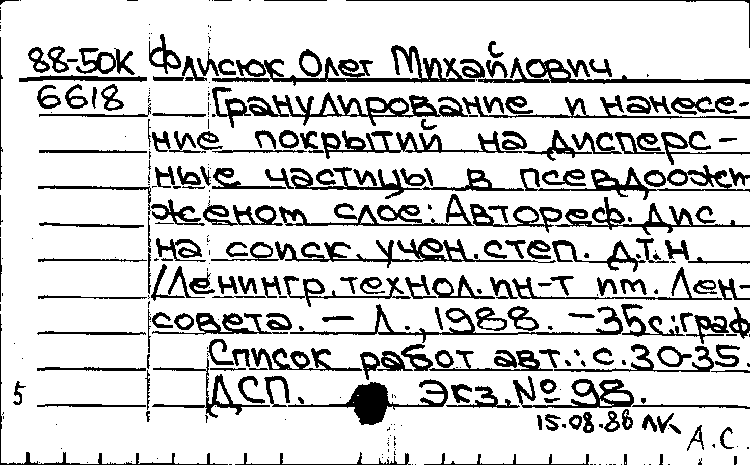 88-50К Флисюк, Олег Михайлович.
6618 Гранулирование и нанесе-
ние покрытий на дисперс-
ные частицы в псевдоожи
женном слое: Автореф. дис.
на соиск. учен. степ. д.т.н.
/Ленингр. технол. ин-т им. Лен-
совета. — Л., 1988. — 35 с.: граф
Список работ авт.: с. 30-35.
5 ДСП. Экз. № 98.
15.08.88 ЛК
А.С.